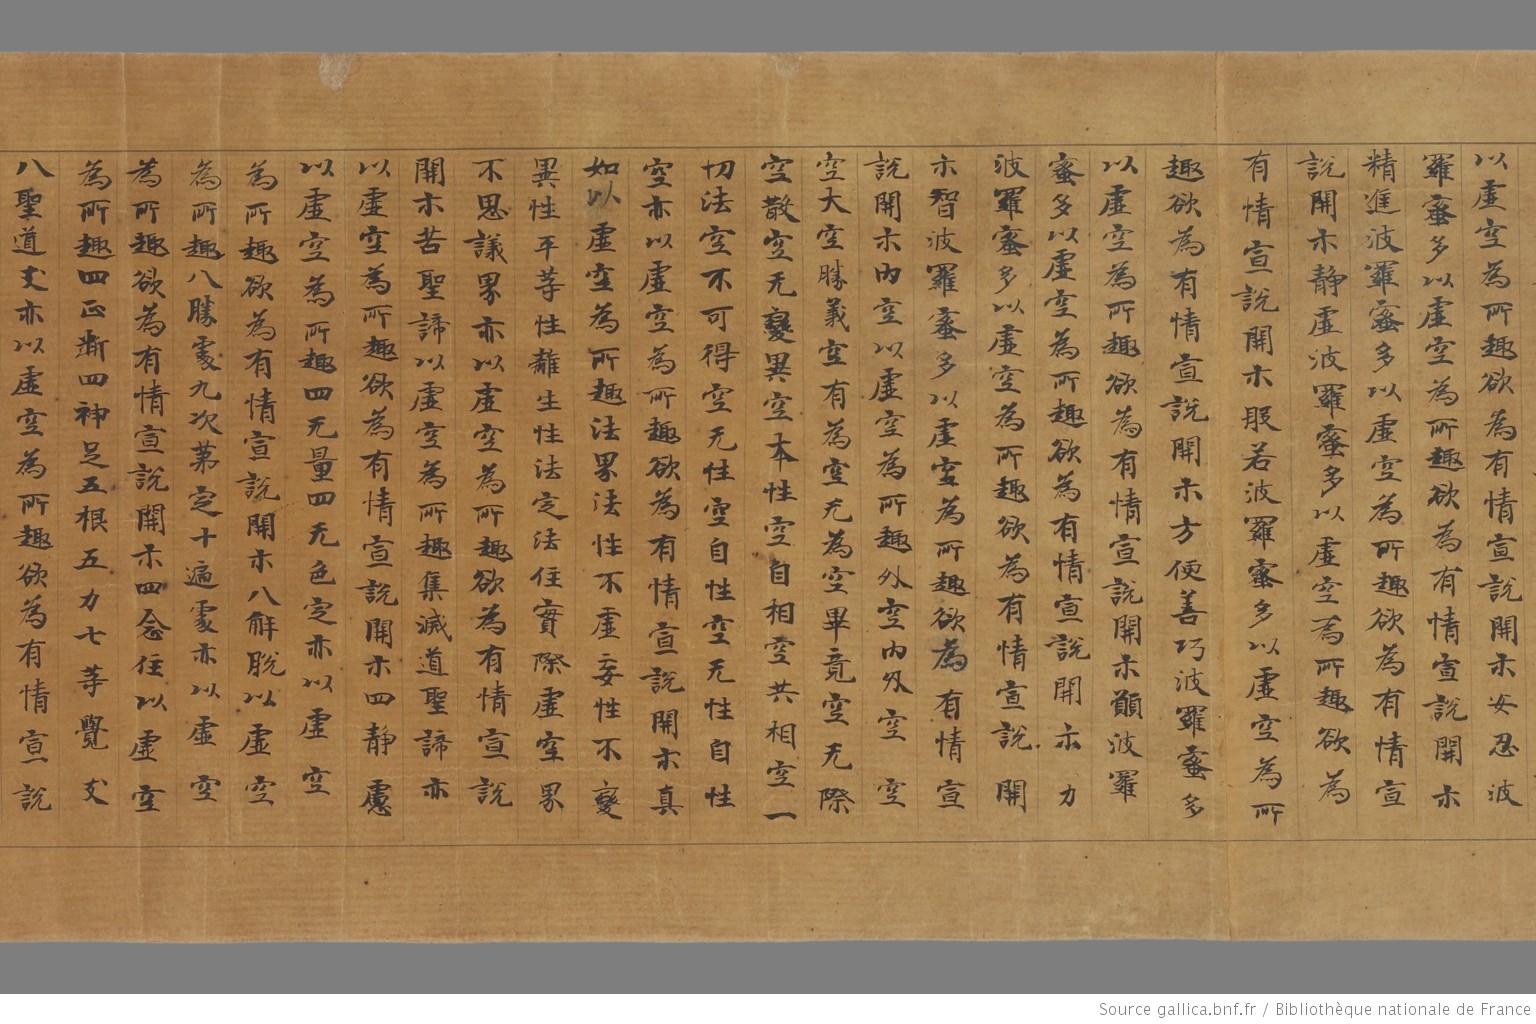 以虛空為所趣欲為有情宣說開示安忍波
羅蜜多以虛空為所趣欲為有情宣說開示
精進波羅蜜多以虛空為所趣欲為有情宣
說開示静慮波羅蜜多以虛空為所趣欲為
有情宣說開示般若波羅蜜多以虛空為所
趣欲為有情宣說開示方便善巧波羅蜜多
以虛空為所趣欲為有情宣說開示願波羅
蜜多以虛空為所趣欲為有情宣說開示力
波羅蜜多以虛空為所趣欲為有情宣說開
示智波羅蜜多以虛空為所趣欲為有情宣
說開示内空以虛空為所趣外空内外空空
空大空勝義空有為空无為空畢竟空无際
空散空无變異空本性空自相空共相空一
切法空不可得空无性空自性空无性自性
空亦以虛空為所趣欲為有情宣說開示真
如以虛空為所趣法界法性不虛妄性不變
異性平等性離生性法定法住實際虛空界
不思議界亦以虛空為所趣欲為有情宣說
開示苦聖諦以虛空為所趣集滅道聖諦亦
以虛空為所趣欲為有情宣說開示四静慮
以虛空為所趣四无量四无色定亦以虛空
為所趣欲為有情宣說開示八解脫以虛空
為所趣八勝處九次第定十遍處亦以虛空
為所趣欲為有情宣說開示四念住以虛空
為所趣四正斷四神足五根五力七等覺支
八聖道支亦以虛空為所趣欲為有情宣說
Source gallica.bnf.fr / Bibliothèque nationale de France